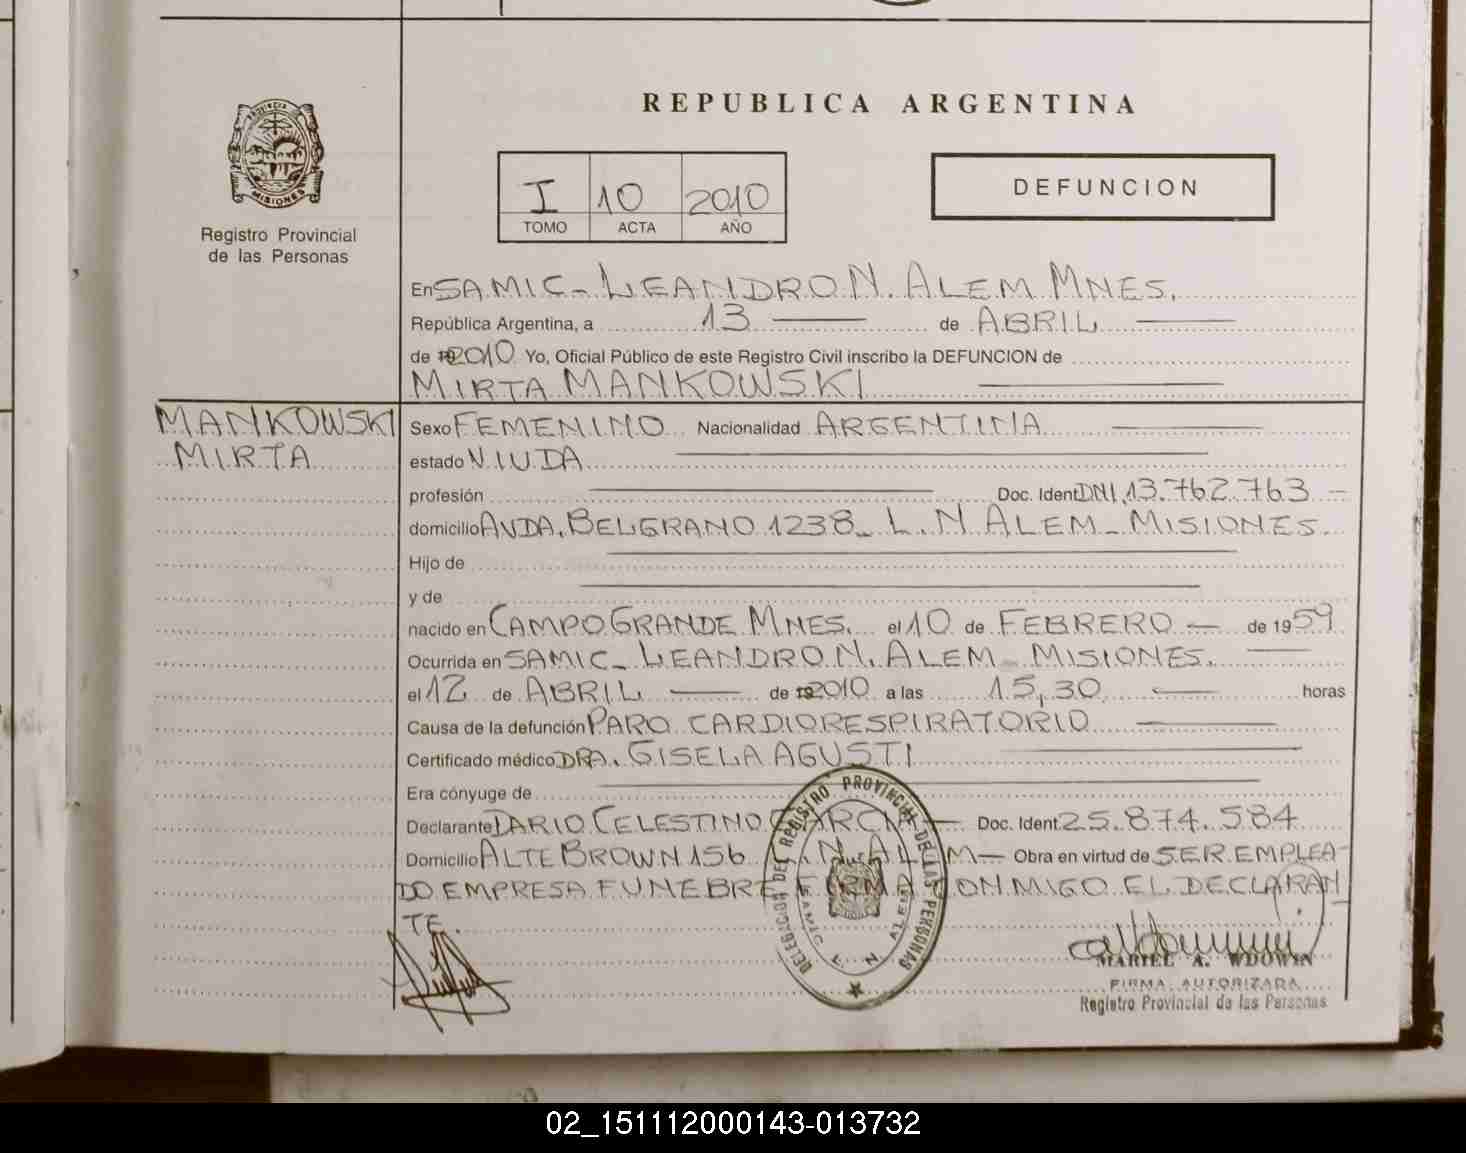 REPUBLICA ARGENTINA
PROVINCIA
MISIONES
Registro Provincial
de las Personas
I 10 2010
TOMO ACTA AÑO
DEFUNCION
En SAMIC - LEANDRO N. ALEM MNES.
República Argentina, a 13 de ABRIL
de 2010 Yo, Oficial Público de este Registro Civil inscribo la DEFUNCION de
MIRTA MANKOWSKI
MANKOWSKI
MIRTA
Sexo FEMENINO Nacionalidad ARGENTINA
estado VIUDA
profesión Doc. Ident DNI, 13.762.763 -
domicilio AVDA. BELGRANO 1238 - L. N. ALEM - MISIONES.
Hijo de
y de
nacido en CAMPO GRANDE MNES. el 10 de FEBRERO - de 1959
Ocurrida en SAMIC - LEANDRO N. ALEM - MISIONES.
el 12 de ABRIL de 2010 a las 15,30 horas
Causa de la defunción PARO CARDIORESPIRATORIO
Certificado médico DRA. GISELA AGUSTI
Era cónyuge de
Declarante DARIO CELESTINO GARCIA - Doc. Ident. 25.874.584
Domicilio ALTE BROWN 156 L. N. ALEM - Obra en virtud de SER EMPLEA-
DO EMPRESA FUNEBRE FIRMA CONMIGO EL DECLARAN
TE.
DELEGACION DEL REGISTRO PROVINCIAL DE LAS PERSONAS
SAMIC L. N. ALEM
MARIEL A. WDOWIN
FIRMA AUTORIZADA
Registro Provincial de las Personas
02_151112000143-013732